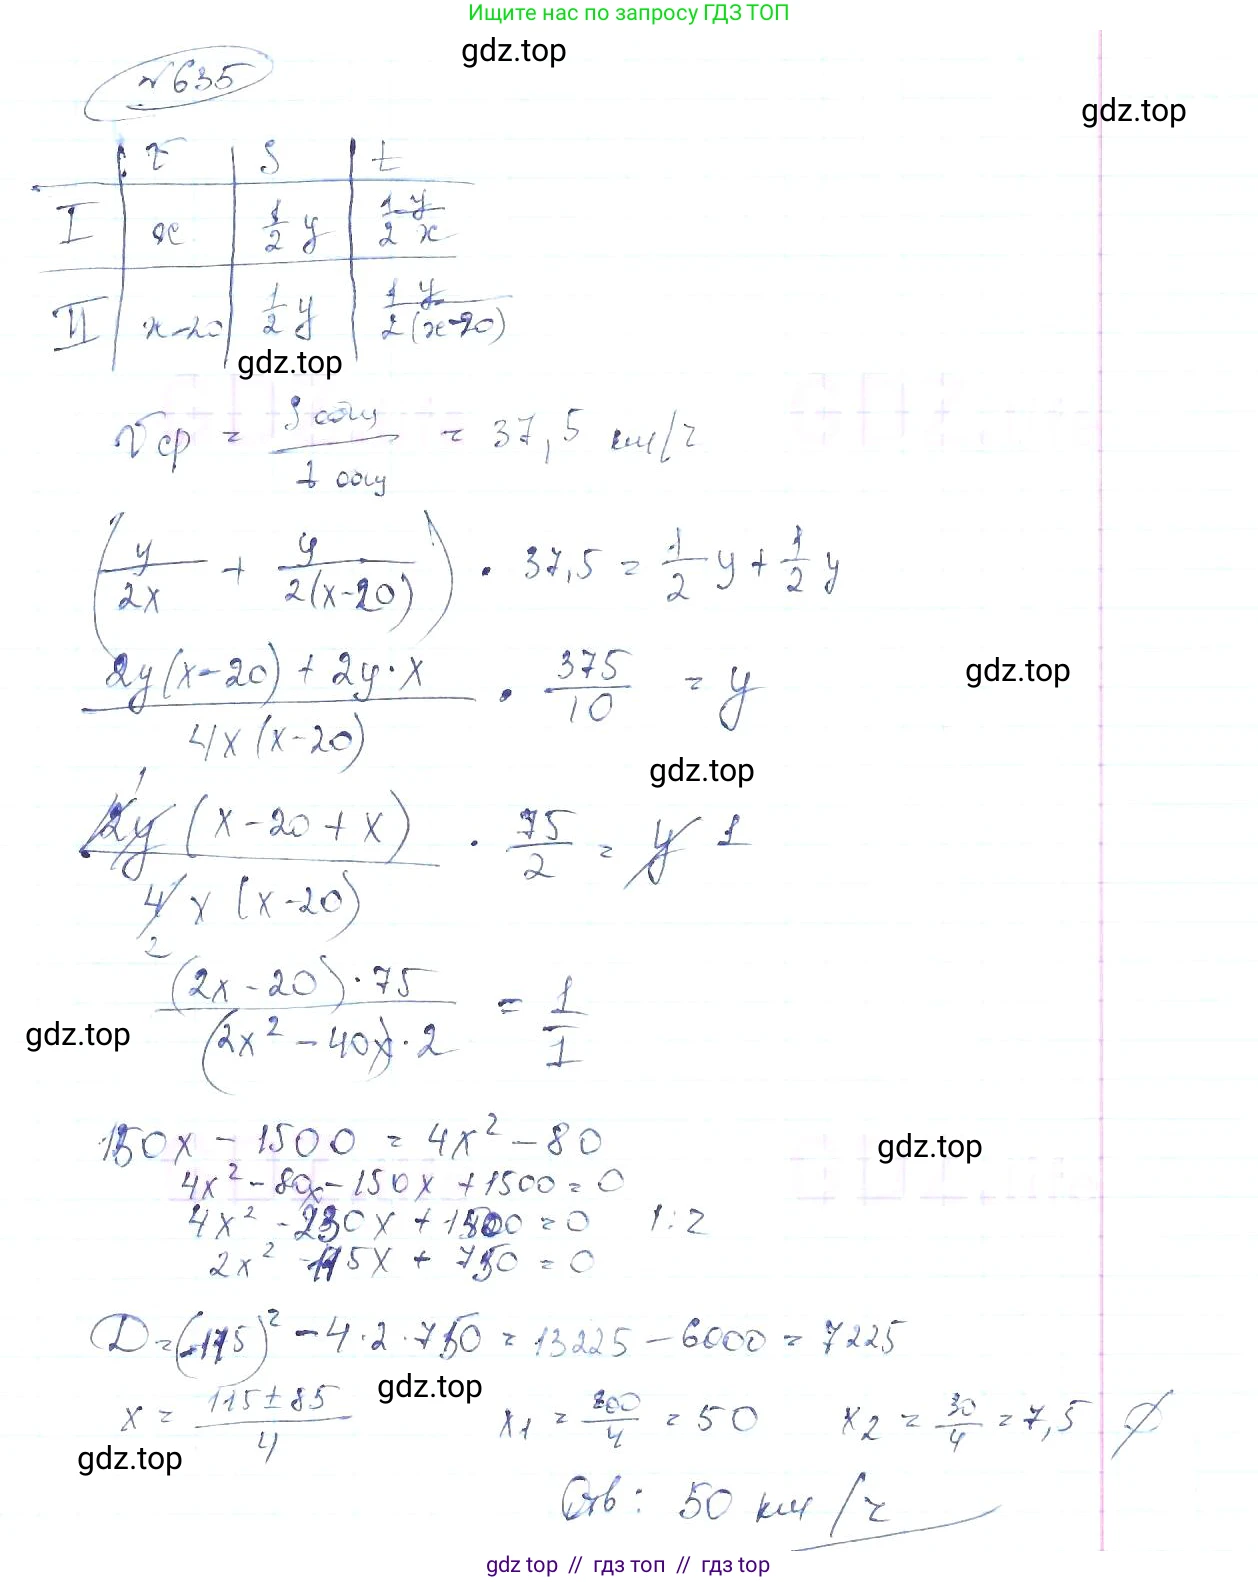 Ищите нас по запросу ГДЗ ТОП
gdz.top
№635
gdz.top
v S t
I x 1/2 y 1/2 y/x
II x-20 1/2 y 1 y/2(x-20)
gdz.top
Vср = S общ / t общ = 37,5 км/ч
(y/2x + y/2(x-20)) · 37,5 = 1/2 y + 1/2 y
2y(x-20) + 2y·x / 4x(x-20) · 375/10 = y
gdz.top
gdz.top
1
2y(x-20+x) / 4x(x-20) · 75/2 = y 1
2
(2x-20)·75 / (2x²-40x)·2 = 1/1
gdz.top
150x - 1500 = 4x² - 80
gdz.top
4x² - 80x - 150x + 1500 = 0
4x² - 230x + 1500 = 0 |:2
2x² - 115x + 750 = 0
D = (-115)² - 4·2·750 = 13225 - 6000 = 7225
gdz.top
x = 115±85 / 4 x1 = 200/4 = 50 x2 = 30/4 = 7,5 ∅
gdz.top
Отв: 50 км/ч
gdz.top // гдз топ // гдз top